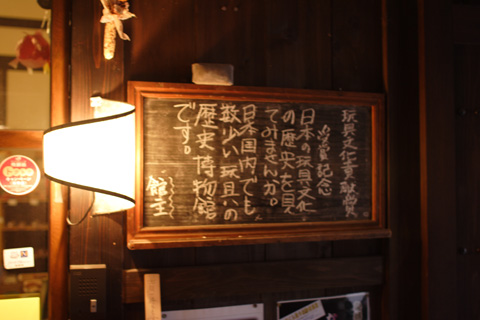 玩具文化貢献賞
受賞記念
日本の玩具文化
の歴史を見
てみませんか。
日本国内でも
数少い玩具の
歴史博物館
です。
館主